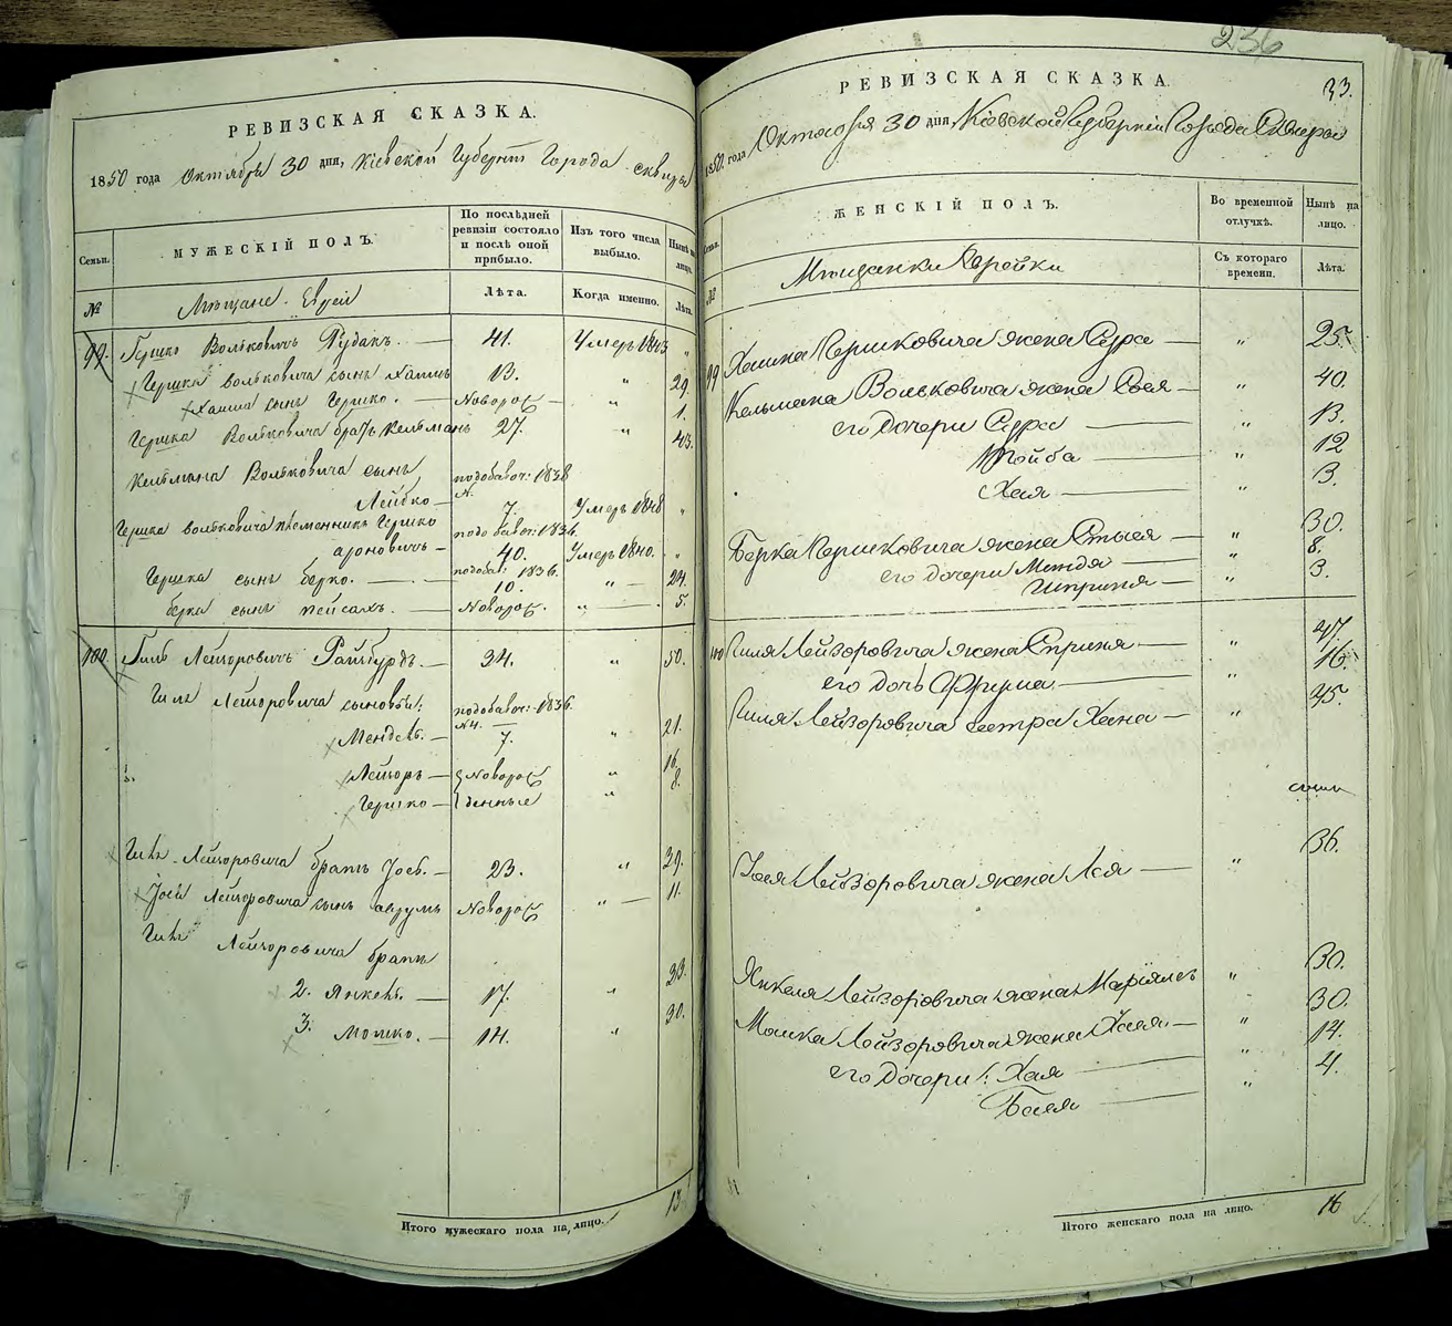 236
РЕВИЗСКАЯ СКАЗКА.
1850 года Октября 30 дня, Кіевской Губерніи Города Сквиры
Семьи.
МУЖЕСКІЙ ПОЛЪ.
По послѣдней ревизіи состояло и послѣ оной прибыло.
Изъ того числа выбыло.
Нынѣ на лицо.
№
Мѣщане Евреи
Лѣта.
Когда именно.
Лѣта.
99. Гершко Вольковичъ Рудакъ. — 41. Умеръ 1843 „
Гершка Вольковича сынъ Хаимъ 13. „ 29.
Хаима сынъ Гершко. — Новорож — „ 1.
Гершка Вольковича братъ Кельманъ 27. „ 43.
Кельмана Вольковича сынъ
Лейбко — 7. Умеръ 1848 „
Гершка Вольковича племенникъ Гершко
Ароновичъ — 40. Умеръ 1840. „
Гершка сынъ Берко. — 10. „ — 24.
Берка сынъ Пейсахъ. — Новорож. „ — 5.
100. Гиль Лейзоровичъ Райзбурдъ. — 34. „ 50.
Гиля Лейзоровича сыновья:
Мендель. — 7. „ 21.
Лейзоръ — Новорож „ 16.
Гершко — денные „ 8.
Гиля Лейзоровича братъ Іось. — 23. „ 39.
Іося Лейзоровича сынъ Аврумъ Новорож „ — 11.
Гиля Лейзоровича братья
2. Янкель. — 17. „ 33.
3. Мошко. — 14. „ 30.
Итого мужескаго пола на лицо. 13
РЕВИЗСКАЯ СКАЗКА.
33.
1850. года Октября 30 дня, Кіевской Губерніи Города Сквиры
Семьи.
ЖЕНСКІЙ ПОЛЪ.
Во временной отлучкѣ.
Нынѣ на лицо.
№
Мѣщанки Еврейки
Съ котораго времени.
Лѣта.
99 Хаимка Гершковича жена Сура — „ 25.
Кельмана Вольковича жена Фея — „ 40.
его дочери Сура — „ 13.
Тойба — „ 12
Хая — „ 3.
Берка Гершковича жена Стыся — „ 30.
его дочери Миндя — „ 8.
Шпринця — „ 3.
100 Гиля Лейзоровича жена Сприня — „ 47.
его дочь Фрума — „ 16.
Гиля Лейзоровича сестра Хана — „ 45.
Іося Лейзоровича жена Лея — „ 36.
Янкеля Лейзоровича жена Маріямъ „ 30.
Мошка Лейзоровича жена Хая. — „ 30.
его дочери: Хая — „ 14.
Бася — „ 4.
Итого женскаго пола на лицо. 16